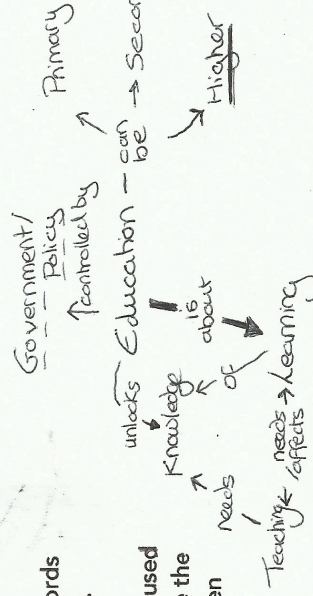 ords
.
used
e the
en
Government/
Policy
controlled by
Education – can
be
Primary
Secon
Higher
is
about
unlocks
Knowledge
of
needs
Teaching
needs
/affects
Learning